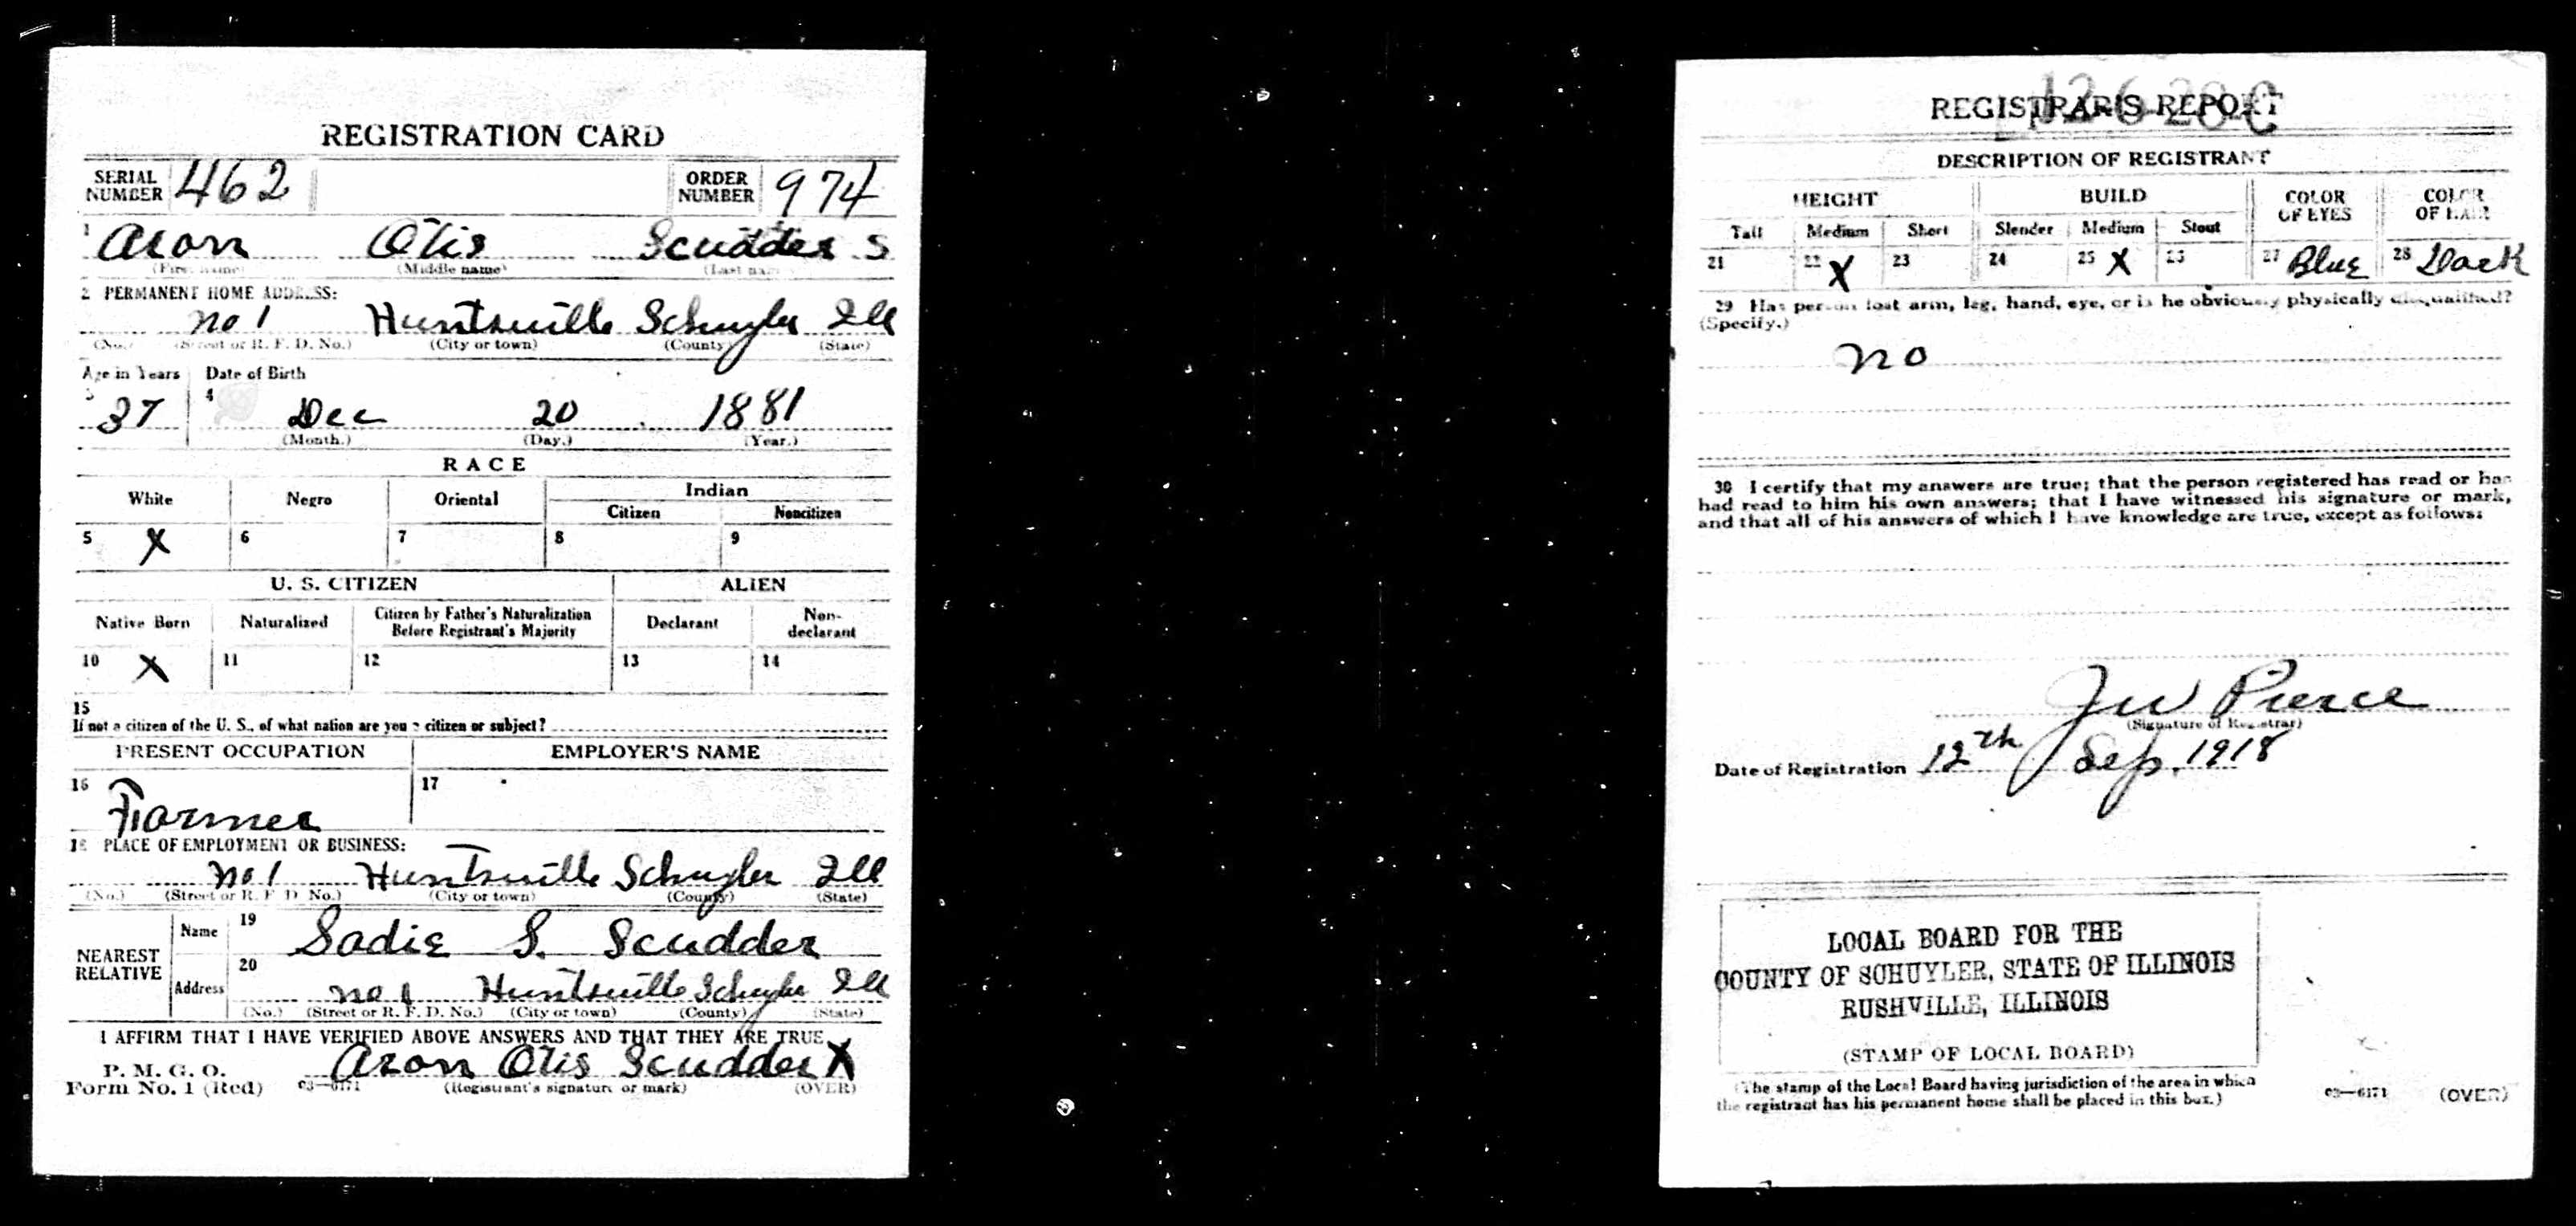 REGISTRATION CARD
SERIAL NUMBER 462 ORDER NUMBER 974
1 Aron Otis Scudder S
(First name) (Middle name) (Last name)
2 PERMANENT HOME ADDRESS:
no 1 Huntsville Schuyler Ill
(No.) (Street or R. F. D. No.) (City or town) (County) (State)
Age in Years Date of Birth
3 37 4 Dec 20 1881
(Month.) (Day.) (Year.)
RACE
White Negro Oriental Indian
Citizen Noncitizen
5 X 6 7 8 9
U. S. CITIZEN ALIEN
Native Born Naturalized Citizen by Father's Naturalization Before Registrant's Majority Declarant Non-declarant
10 X 11 12 13 14
15
If not a citizen of the U. S., of what nation are you a citizen or subject?
PRESENT OCCUPATION EMPLOYER'S NAME
16 Farmer 17
18 PLACE OF EMPLOYMENT OR BUSINESS:
no 1 Huntsville Schuyler Ill
(No.) (Street or R. F. D. No.) (City or town) (County) (State)
NEAREST RELATIVE
Name 19 Sadie S. Scudder
Address 20 no 1 Huntsville Schuyler Ill
(No.) (Street or R. F. D. No.) (City or town) (County) (State)
I AFFIRM THAT I HAVE VERIFIED ABOVE ANSWERS AND THAT THEY ARE TRUE
P. M. G. O. Aron Otis Scudder X
Form No. 1 (Red) 03—6171 (Registrant's signature or mark) (OVER)
REGISTRAR'S REPORT
DESCRIPTION OF REGISTRANT
HEIGHT BUILD COLOR OF EYES COLOR OF HAIR
Tall Medium Short Slender Medium Stout
21 22 X 23 24 25 X 26 27 Blue 28 Dark
29 Has person lost arm, leg, hand, eye, or is he obviously physically disqualified?
(Specify.)
no
30 I certify that my answers are true; that the person registered has read or has
had read to him his own answers; that I have witnessed his signature or mark,
and that all of his answers of which I have knowledge are true, except as follows:
JW Pierce
(Signature of Registrar)
Date of Registration 12th Sep. 1918
LOCAL BOARD FOR THE
COUNTY OF SCHUYLER, STATE OF ILLINOIS
RUSHVILLE, ILLINOIS
(STAMP OF LOCAL BOARD)
(The stamp of the Local Board having jurisdiction of the area in which
the registrant has his permanent home shall be placed in this box.)
03—6171 (OVER)